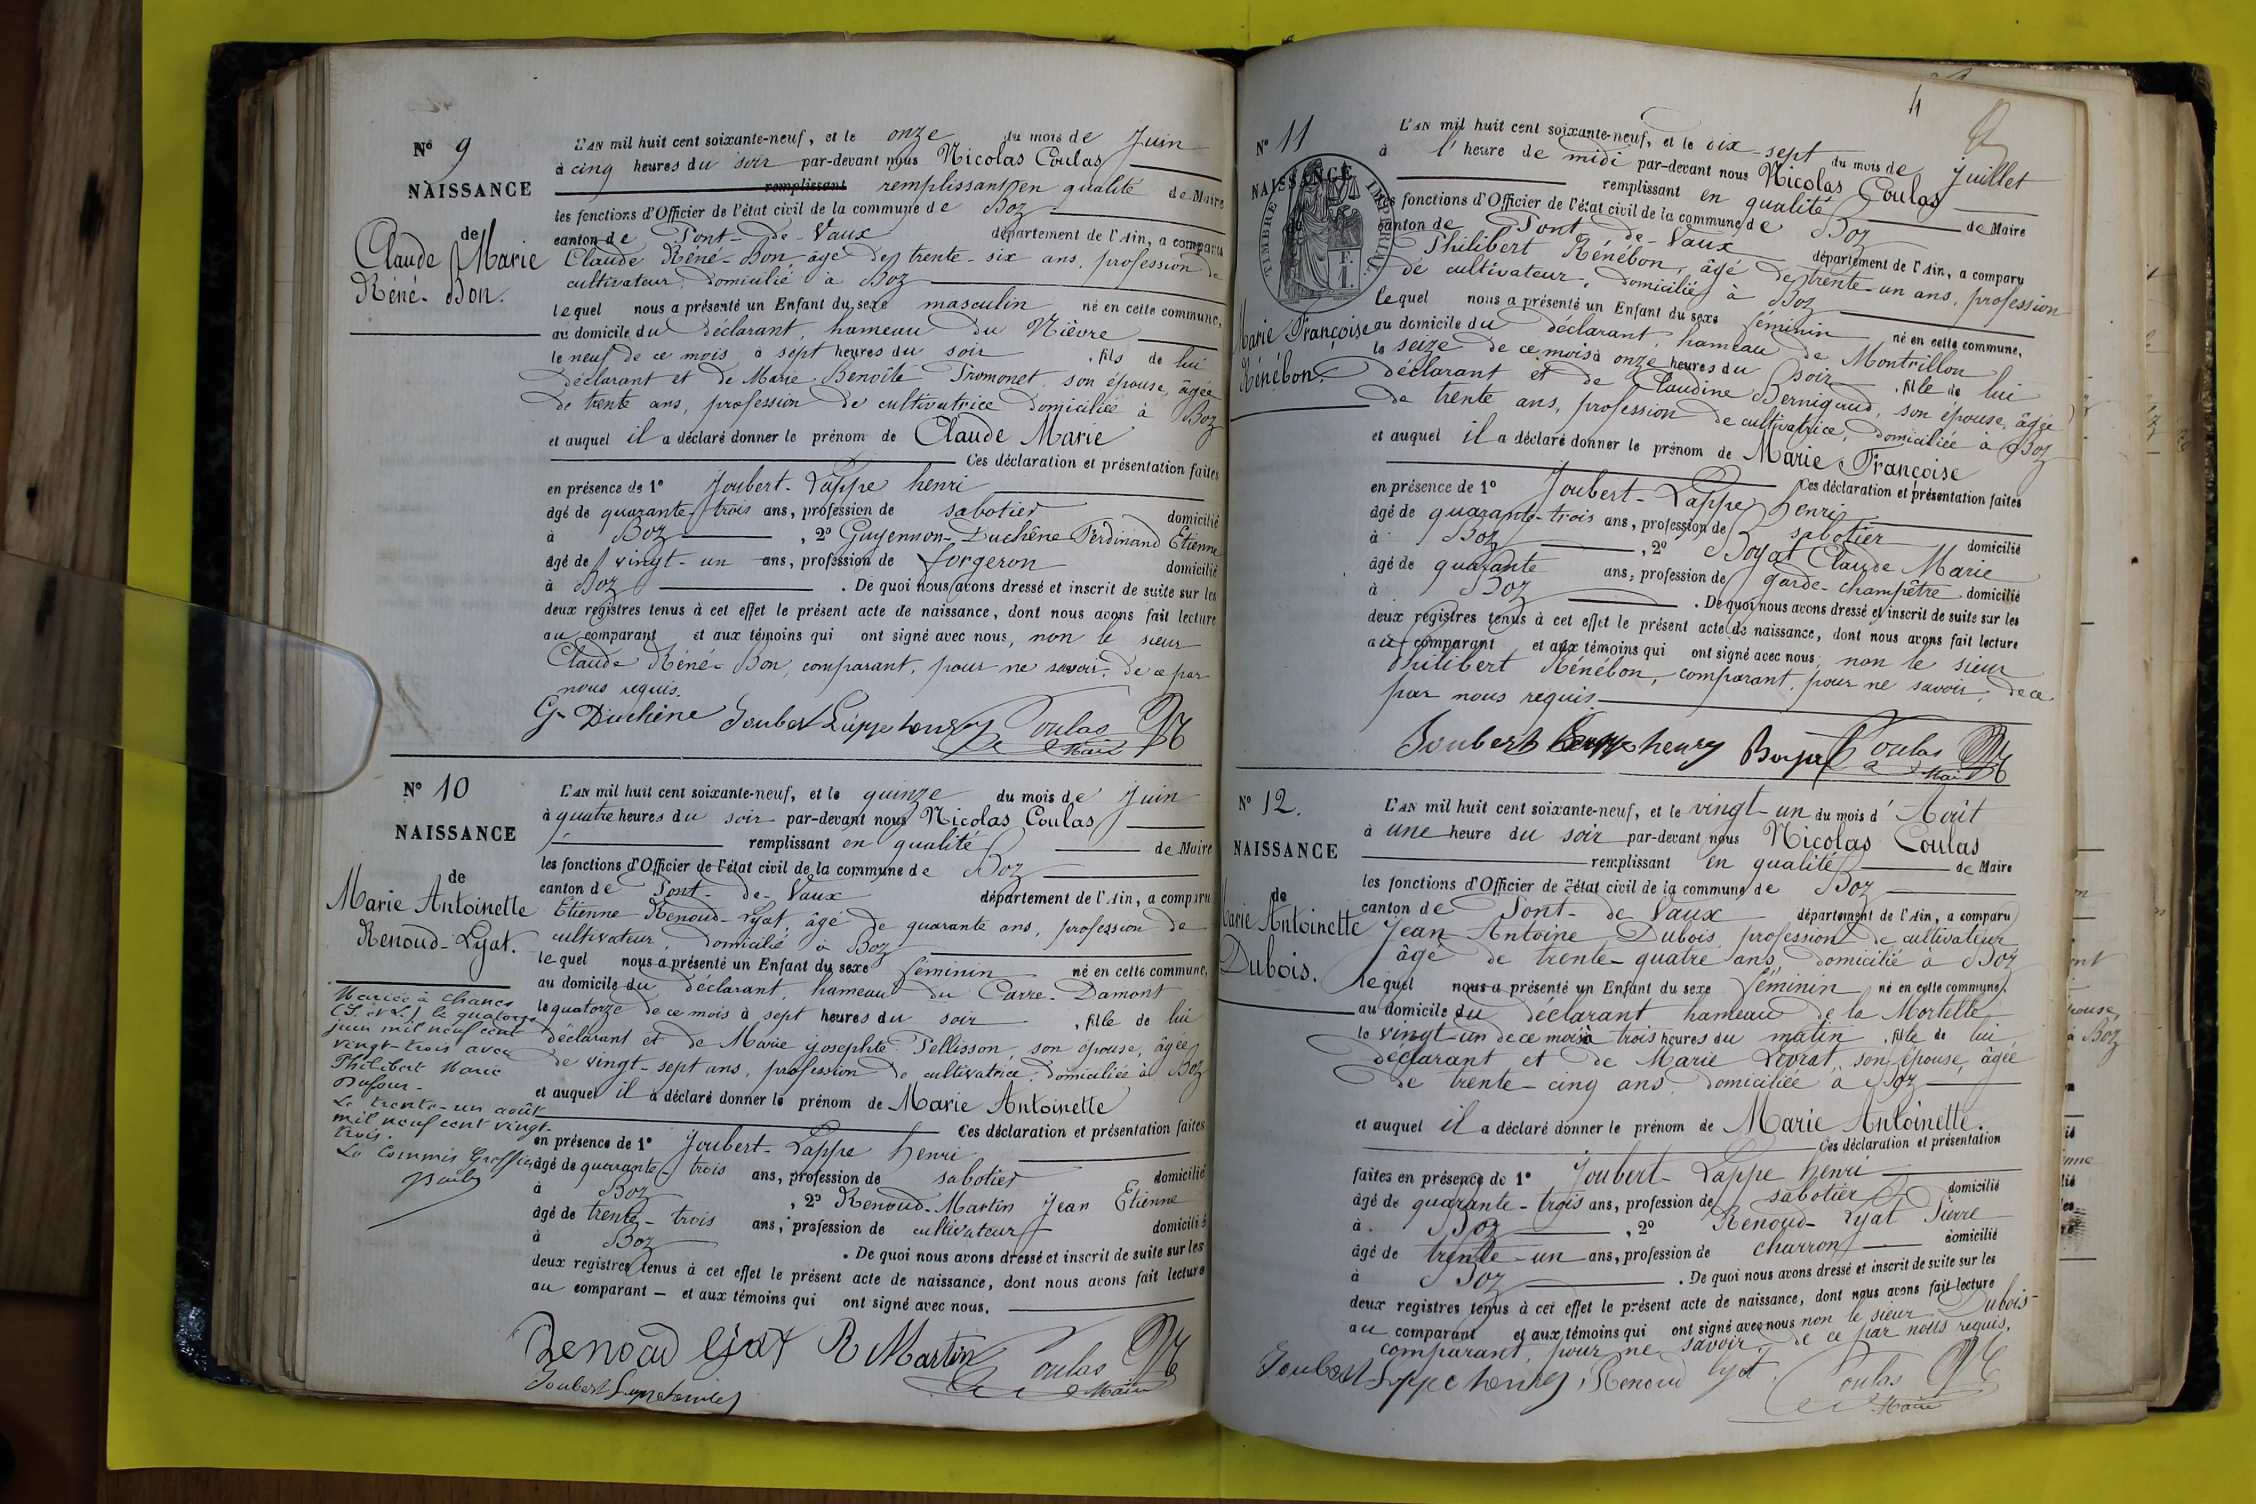 Nº 9
NAISSANCE
de
Claude Marie
Réné-Bon.
L'AN mil huit cent soixante-neuf, et le onze du mois de Juin
à cinq heures du soir par-devant nous Nicolas Coulas
remplissant remplissant en qualité de Maire
les fonctions d'Officier de l'état civil de la commune de Boz
canton de Pont-de-Vaux département de l'Ain, a comparu
Claude Réné-Bon, âgé de trente-six ans, profession de
cultivateur, domicilié à Boz
lequel nous a présenté un Enfant du sexe masculin né en cette commune,
au domicile du déclarant, hameau du Nièvre
le neuf de ce mois à sept heures du soir, fils de lui
déclarant et de Marie Benoîte Promonet, son épouse, âgée
de trente ans, profession de cultivatrice domiciliée à Boz
et auquel il a déclaré donner le prénom de Claude Marie
Ces déclaration et présentation faites
en présence de 1º Joubert-Lappe henri
âgé de quarante-trois ans, profession de sabotier domicilié
à Boz, 2º Guyennon-Duchêne Ferdinand Etienne
âgé de vingt-un ans, profession de forgeron domicilié
à Boz. De quoi nous avons dressé et inscrit de suite sur les
deux registres tenus à cet effet le présent acte de naissance, dont nous avons fait lecture
au comparant et aux témoins qui ont signé avec nous, non le sieur
Claude Réné-Bon, comparant, pour ne savoir, de ce par
nous requis.
G- Duchêne Joubert Lappe henry Coulas
Maire
Nº 10
NAISSANCE
de
Marie Antoinette
Renoud-Lyat.
Mariée à Chanes
(S. et L.) le quatorze
juin mil neuf cent
vingt-trois avec
Philibert Marie
Dufour.
Le trente-un août
mil neuf cent vingt-
trois.
Le Commis Greffier
L'AN mil huit cent soixante-neuf, et le quinze du mois de Juin
à quatre heures du soir par-devant nous Nicolas Coulas
remplissant en qualité de Maire
les fonctions d'Officier de l'état civil de la commune de Boz
canton de Pont-de-Vaux département de l'Ain, a comparu
Etienne Renoud-Lyat, âgé de quarante ans, profession de
cultivateur, domicilié à Boz
lequel nous a présenté un Enfant du sexe féminin né en cette commune,
au domicile du déclarant, hameau du Carre-Damont
le quatorze de ce mois à sept heures du soir, fille de lui
déclarant et de Marie Josephte Pellisson, son épouse, âgée
de vingt-sept ans, profession de cultivatrice, domiciliée à Boz
et auquel il a déclaré donner le prénom de Marie Antoinette
Ces déclaration et présentation faites
en présence de 1º Joubert-Lappe henri
âgé de quarante-trois ans, profession de sabotier domicilié
à Boz, 2º Renoud-Martin Jean Etienne
âgé de trente-trois ans, profession de cultivateur domicilié
à Boz. De quoi nous avons dressé et inscrit de suite sur les
deux registres tenus à cet effet le présent acte de naissance, dont nous avons fait lecture
au comparant — et aux témoins qui ont signé avec nous.
Renoud lyat R Martin Coulas
Joubert Lappe henry Maire
4
Nº 11
NAISSANCE
TIMBRE IMPERIAL
Marie Françoise
Rénébon.
L'AN mil huit cent soixante-neuf, et le dix-sept du mois de juillet
à l'heure de midi par-devant nous Nicolas Coulas
remplissant en qualité de Maire
les fonctions d'Officier de l'état civil de la commune de Boz
canton de Pont-de-Vaux département de l'Ain, a comparu
Philibert Rénébon, âgé de trente-un ans, profession
de cultivateur, domicilié à Boz
lequel nous a présenté un Enfant du sexe féminin né en cette commune,
au domicile du déclarant, hameau de Montrillon
le seize de ce mois à onze heures du soir, fille de lui
déclarant et de Claudine Bernigaud, son épouse, âgée
de trente ans, profession de cultivatrice, domiciliée à Boz
et auquel il a déclaré donner le prénom de Marie Françoise
Ces déclaration et présentation faites
en présence de 1º Joubert-Lappe henri
âgé de quarante-trois ans, profession de sabotier domicilié
à Boz, 2º Boyat Claude Marie
âgé de quarante ans, profession de garde-champêtre domicilié
à Boz. De quoi nous avons dressé et inscrit de suite sur les
deux registres tenus à cet effet le présent acte de naissance, dont nous avons fait lecture
au comparant et aux témoins qui ont signé avec nous, non le sieur
Philibert Rénébon, comparant, pour ne savoir, de ce
par nous requis.
Joubert Lappe henry Boyat Coulas
Maire
Nº 12.
NAISSANCE
de
Marie Antoinette
Dubois.
L'AN mil huit cent soixante-neuf, et le vingt-un du mois d'Août
à une heure du soir par-devant nous Nicolas Coulas
remplissant en qualité de Maire
les fonctions d'Officier de l'état civil de la commune de Boz
canton de Pont-de Vaux département de l'Ain, a comparu
Jean Antoine Dubois, profession de cultivateur
âgé de trente-quatre ans, domicilié à Boz
lequel nous a présenté un Enfant du sexe féminin né en cette commune,
au domicile du déclarant hameau de la Mortelle
le vingt-un de ce mois à trois heures du matin, fille de lui
déclarant et de Marie Livrat, son épouse, âgée
de trente-cinq ans domiciliée à Boz
et auquel il a déclaré donner le prénom de Marie Antoinette.
Ces déclaration et présentation
faites en présence de 1º Joubert-Lappe henri
âgé de quarante-trois ans, profession de sabotier domicilié
à Boz, 2º Renoud-Lyat Pierre
âgé de trente-un ans, profession de charron domicilié
à Boz. De quoi nous avons dressé et inscrit de suite sur les
deux registres tenus à cet effet le présent acte de naissance, dont nous avons fait lecture
au comparant et aux témoins qui ont signé avec nous non le sieur Dubois
comparant, pour ne savoir de ce par nous requis.
Joubert Lappe henry Renoud lyat Coulas
Maire